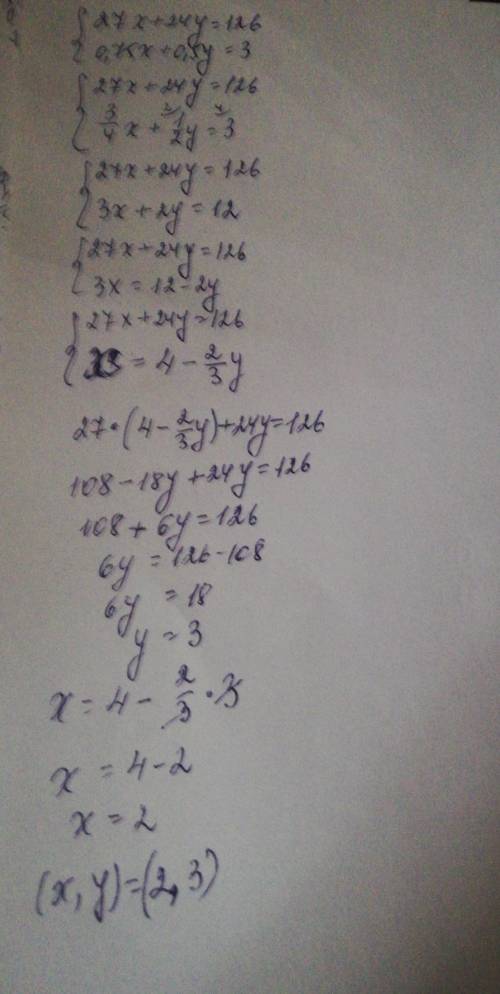 27x+24y=126
0,75x+0,5y=3
27x+24y=126
3/4 x + 1/2 y = 3
27x+24y=126
3x+2y=12
27x+24y=126
3x=12-2y
27x+24y=126
x = 4 - 2/3 y
27·(4-2/3 y)+24y=126
108-18y+24y=126
108+6y=126
6y=126-108
6y=18
y=3
x=4-2/3·3
x=4-2
x=2
(x,y)=(2,3)